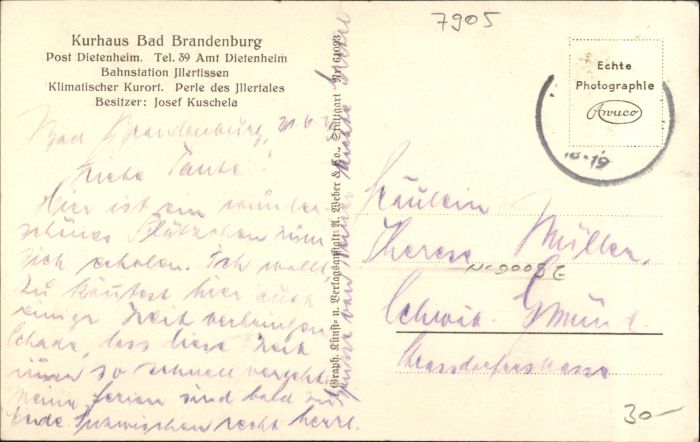 7905
Kurhaus Bad Brandenburg
Post Dietenheim. Tel. 39 Amt Dietenheim
Bahnstation Jllertissen
Klimatischer Kurort. Perle des Jllertales
Besitzer: Josef Kuschela
Echte
Photographie
Awuco
Bad Brandenburg, 21.6.
Liebe Tante!
Hier ist ein wunder
schönes Plätzchen zum
sich erholen. Ich wollt
Du könntest hier auch
einige Zeit verbringen
Schade, dass diese Zeit
nun so schnell vergeht
Meine Ferien sind bald zu
Ende. Inzwischen recht herzl.
Grüsse von Deiner Nichte
Graph. Kunst- u. Verlagsanstalt A. Weber & Co., Stuttgart Nr. 61093
Fräulein
Therese Müller.
Schwäb. Gmünd.
30-